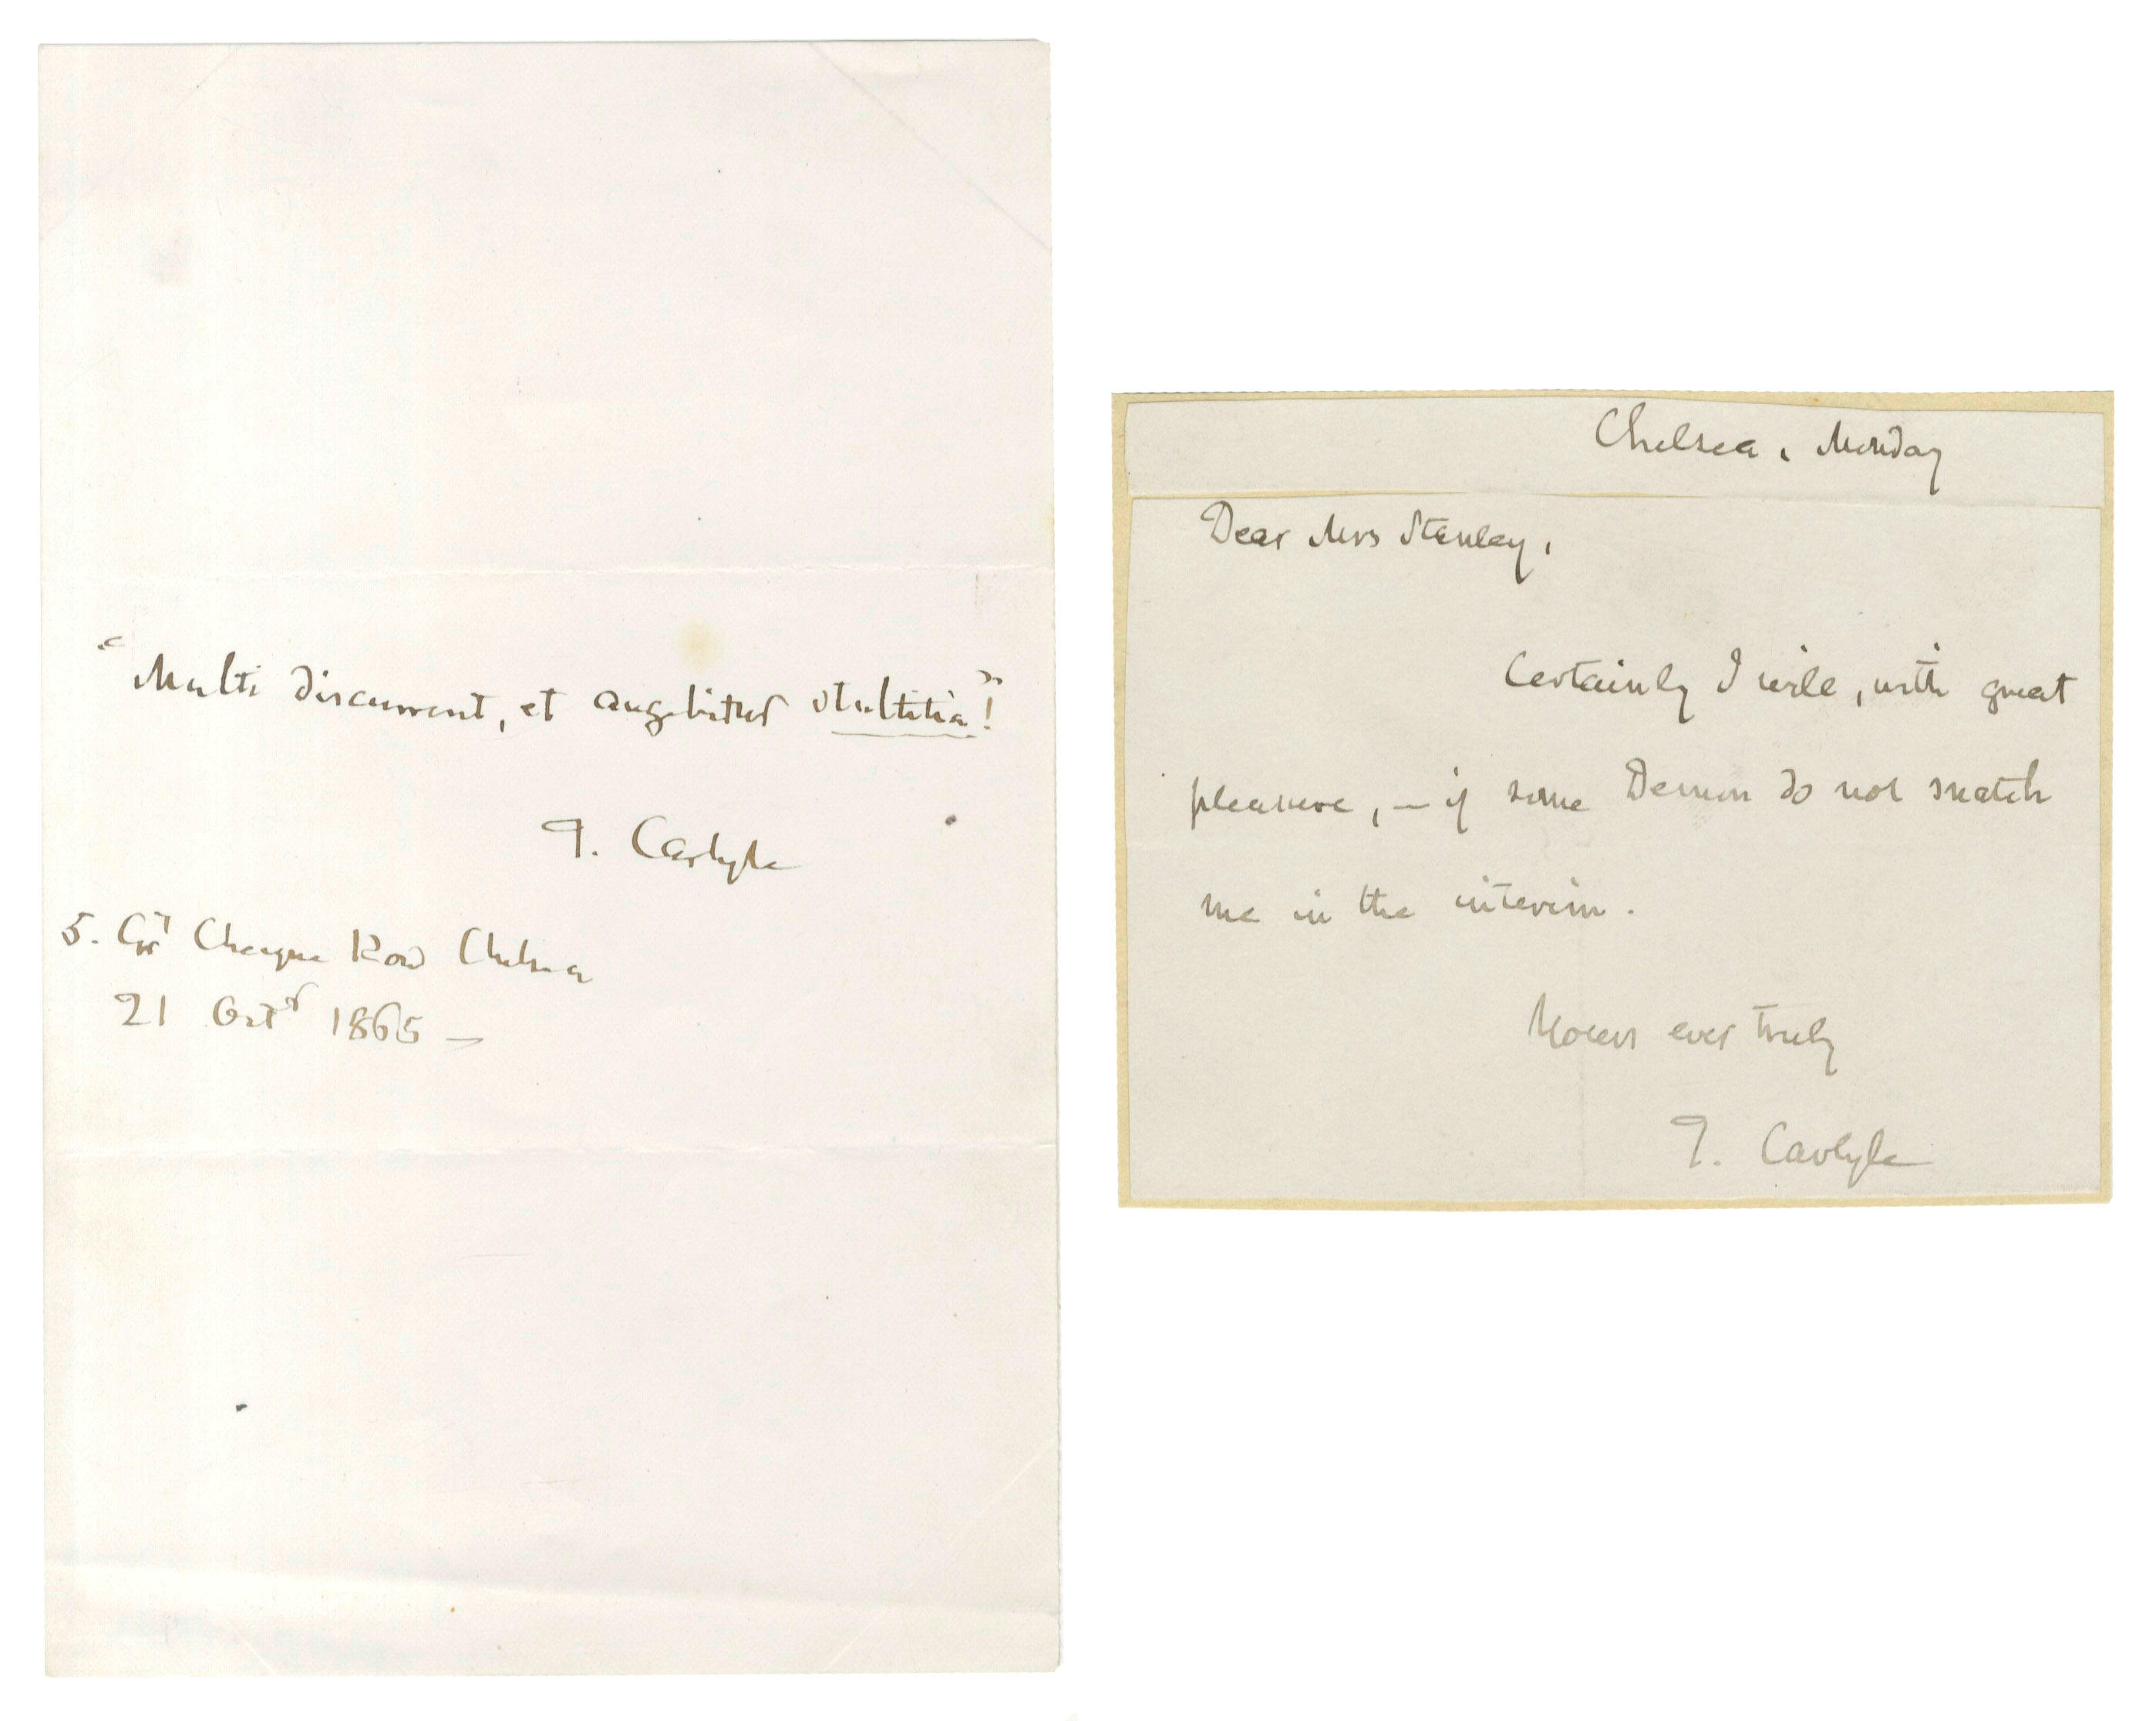 "Multi discurrent, et augebitur stultitia"!
T. Carlyle
5. Gt Cheyne Row Chelsea
21 Octr 1865 —
Chelsea, Monday
Dear Mrs Stanley,
Certainly I will, with great
pleasure, — if some Demon do not snatch
me in the interim.
Yours ever truly
T. Carlyle